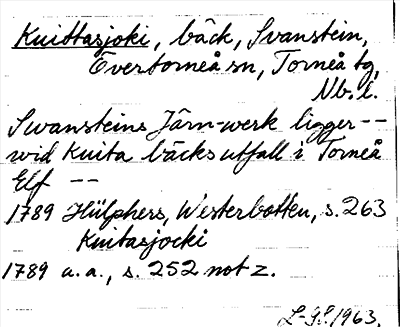 Kuittasjoki, bäck, Svanstein,
Övertorneå sn, Torneå tg,
Nb. l.
Swansteins Järn-werk ligger --
wid Kuita bäcks utfall i Torneå
Elf --
1789 Hülphers, Westerbotten, s. 263
Kuitasjocki
1789 a.a., s. 252 not z.
L-G.L. 1963.